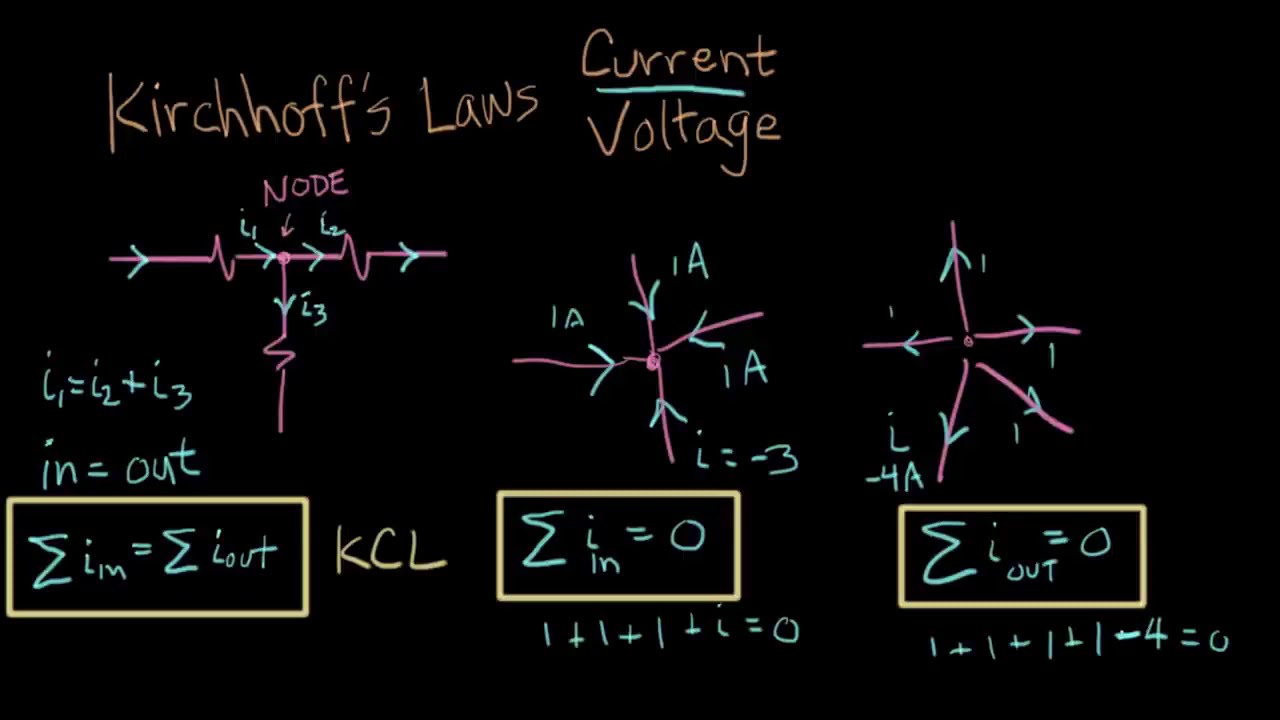 Kirchhoff's Laws
Current
Voltage
NODE
i₁ i₂
i₃
i₁=i₂+i₃
in = out
∑ i_in = ∑ i_out
KCL
1A
1A
1A
i = -3
∑ i_in = 0
1+1+1+i=0
1
1
1
1
i
-4A
∑ i_OUT = 0
1+1+1+1-4=0